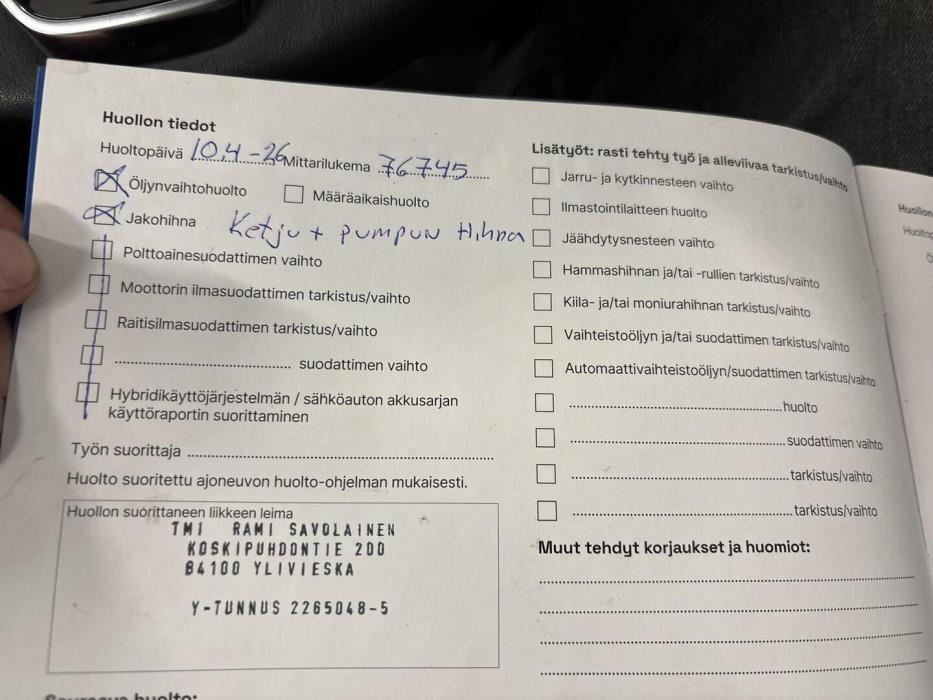 Huollon tiedot
Huoltopäivä 10,4-26 Mittarilukema 76745
Öljynvaihtohuolto Määräaikaishuolto
Jakohihna Ketju + pumpun Hihna
Polttoainesuodattimen vaihto
Moottorin ilmasuodattimen tarkistus/vaihto
Raitisilmasuodattimen tarkistus/vaihto
suodattimen vaihto
Hybridikäyttöjärjestelmän / sähköauton akkusarjan
käyttöraportin suorittaminen
Työn suorittaja
Huolto suoritettu ajoneuvon huolto-ohjelman mukaisesti.
Huollon suorittaneen liikkeen leima
TMI RAMI SAVOLAINEN
KOSKIPUHDONTIE 200
84100 YLIVIESKA
Y-TUNNUS 2265048-5
Seuraava huolto:
Lisätyöt: rasti tehty työ ja alleviivaa tarkistus/vaihto
Jarru- ja kytkinnesteen vaihto
Ilmastointilaitteen huolto
Jäähdytysnesteen vaihto
Hammashihnan ja/tai -rullien tarkistus/vaihto
Kiila- ja/tai moniurahihnan tarkistus/vaihto
Vaihteistoöljyn ja/tai suodattimen tarkistus/vaihto
Automaattivaihteistoöljyn/suodattimen tarkistus/vaihto
huolto
suodattimen vaihto
tarkistus/vaihto
tarkistus/vaihto
Muut tehdyt korjaukset ja huomiot:
Huollon
Huoltop
Ö